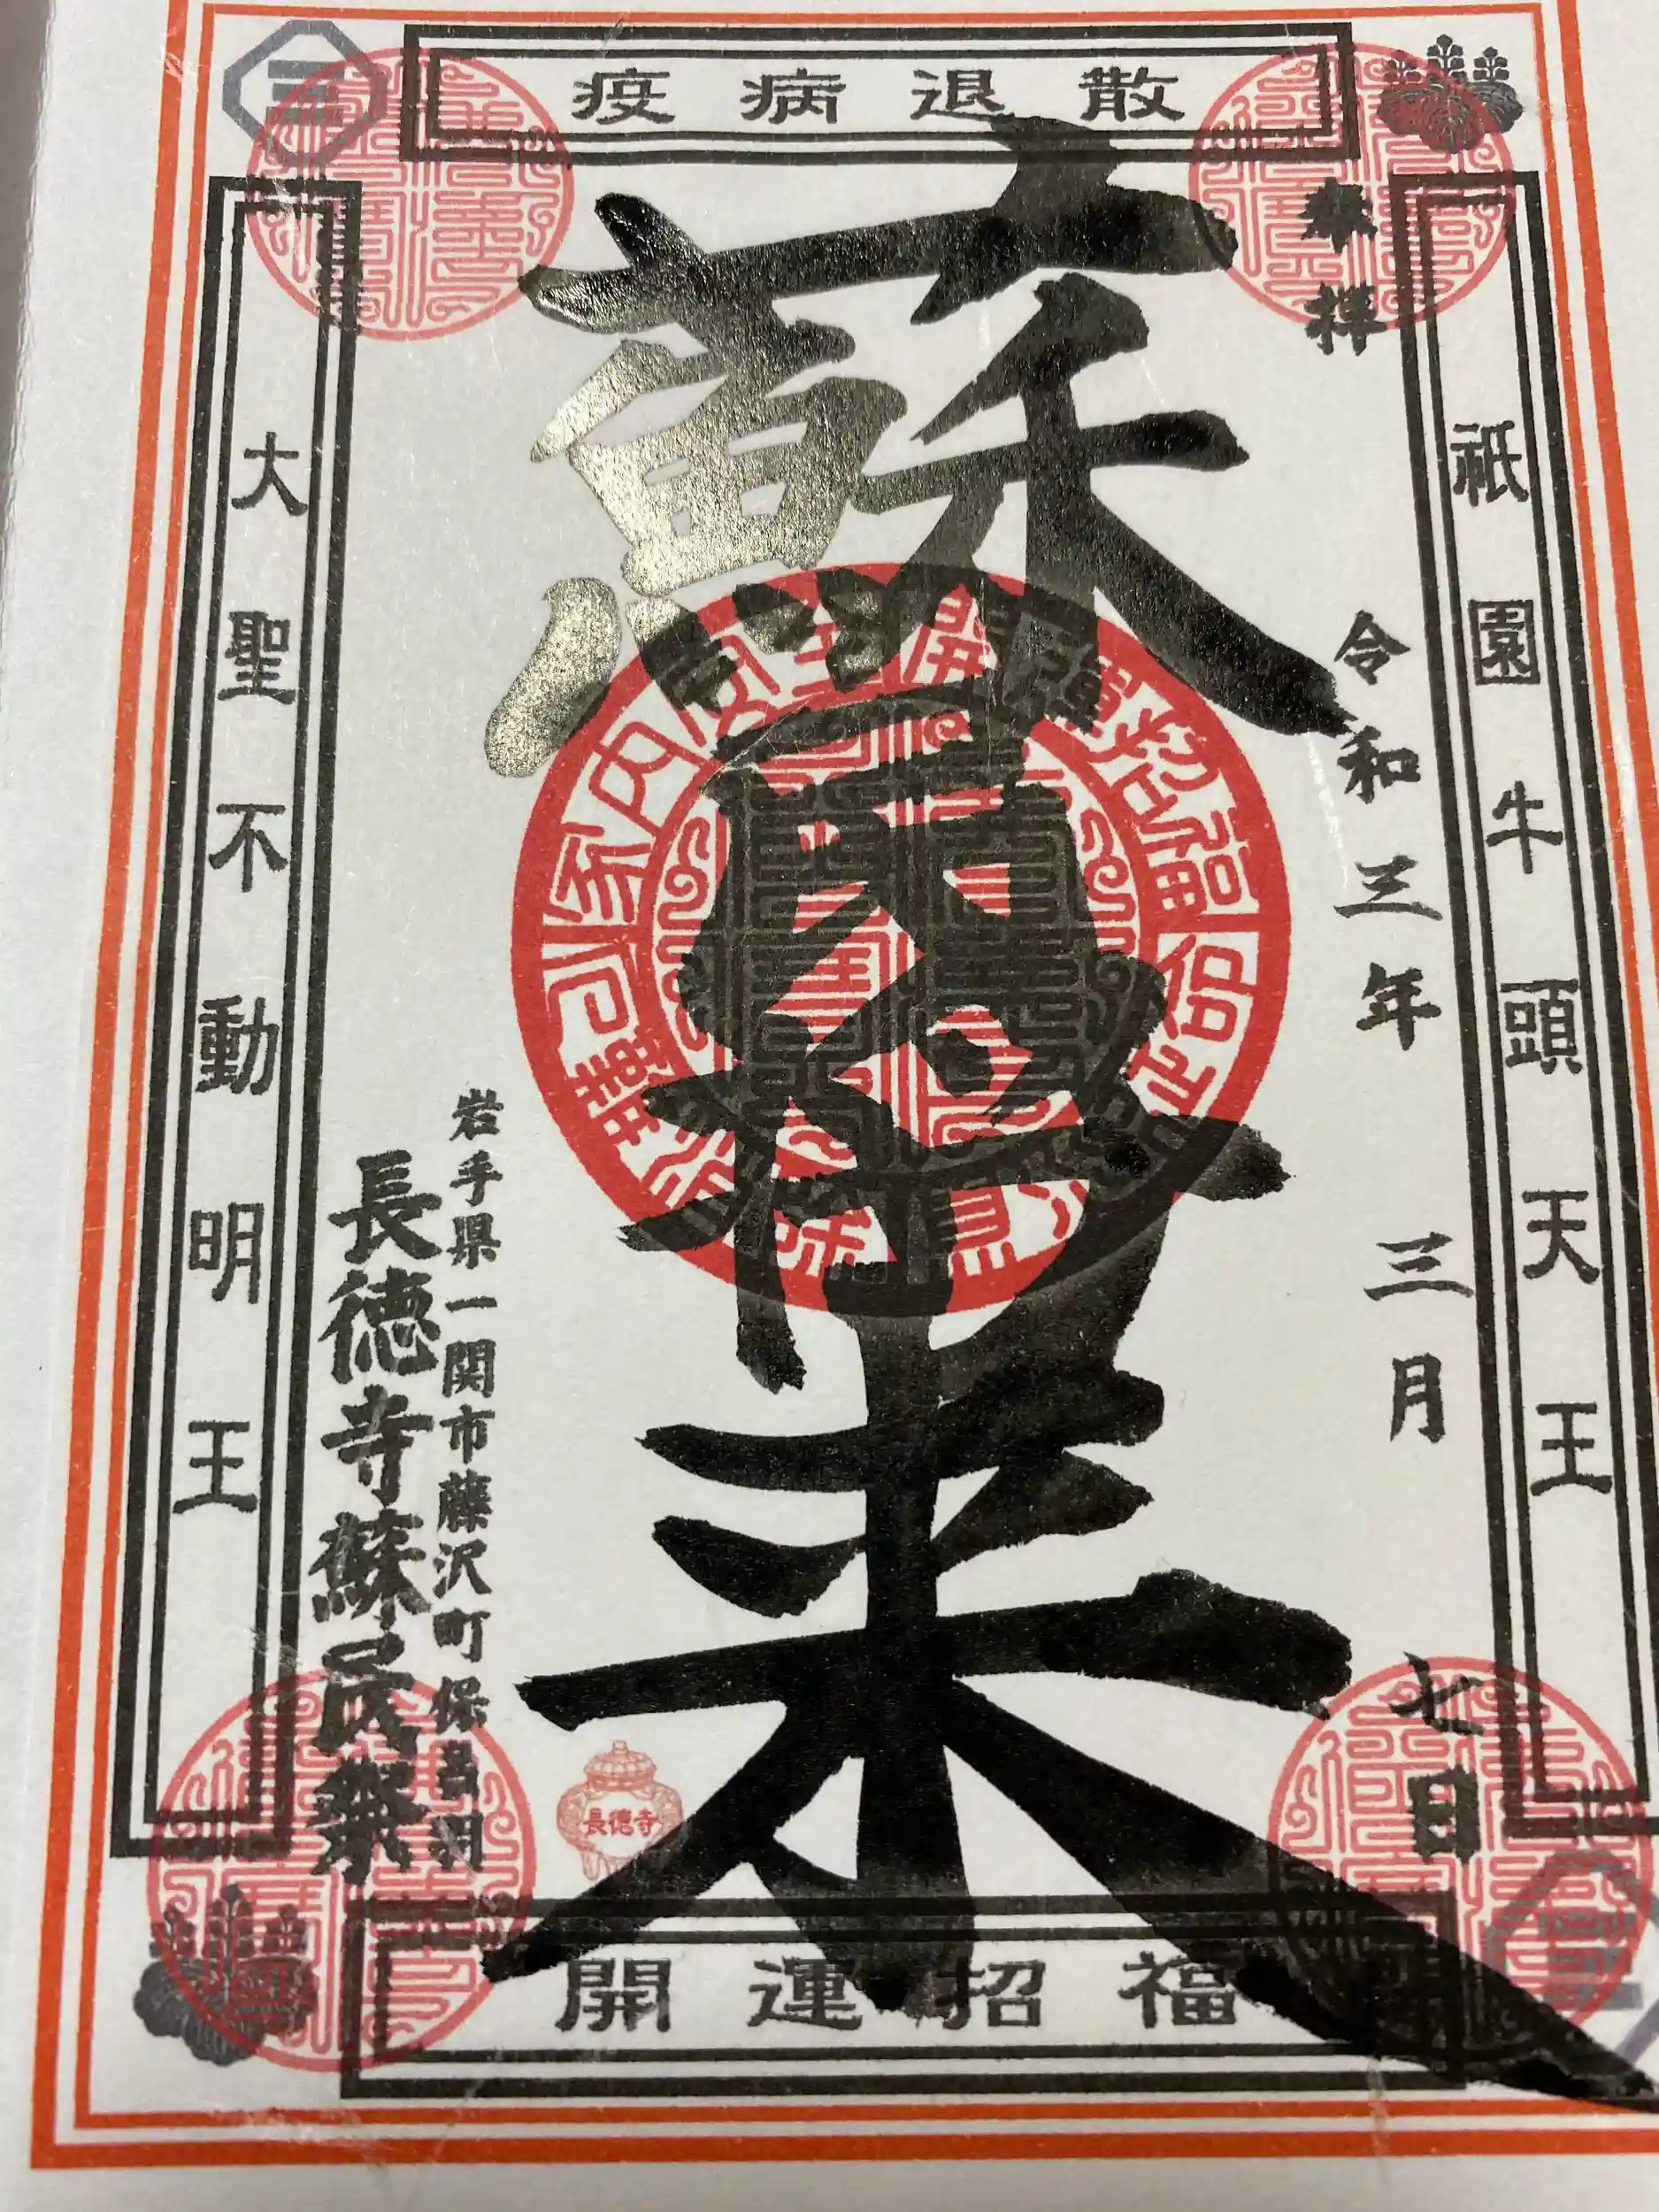 疫病退散
奉拝
祇園牛頭天王
令和三年 三月 七日
蘇民将来
開運招福
家内安全
長徳寺
岩手県一関市藤沢町保呂羽
長徳寺蘇民祭
大聖不動明王
開運招福